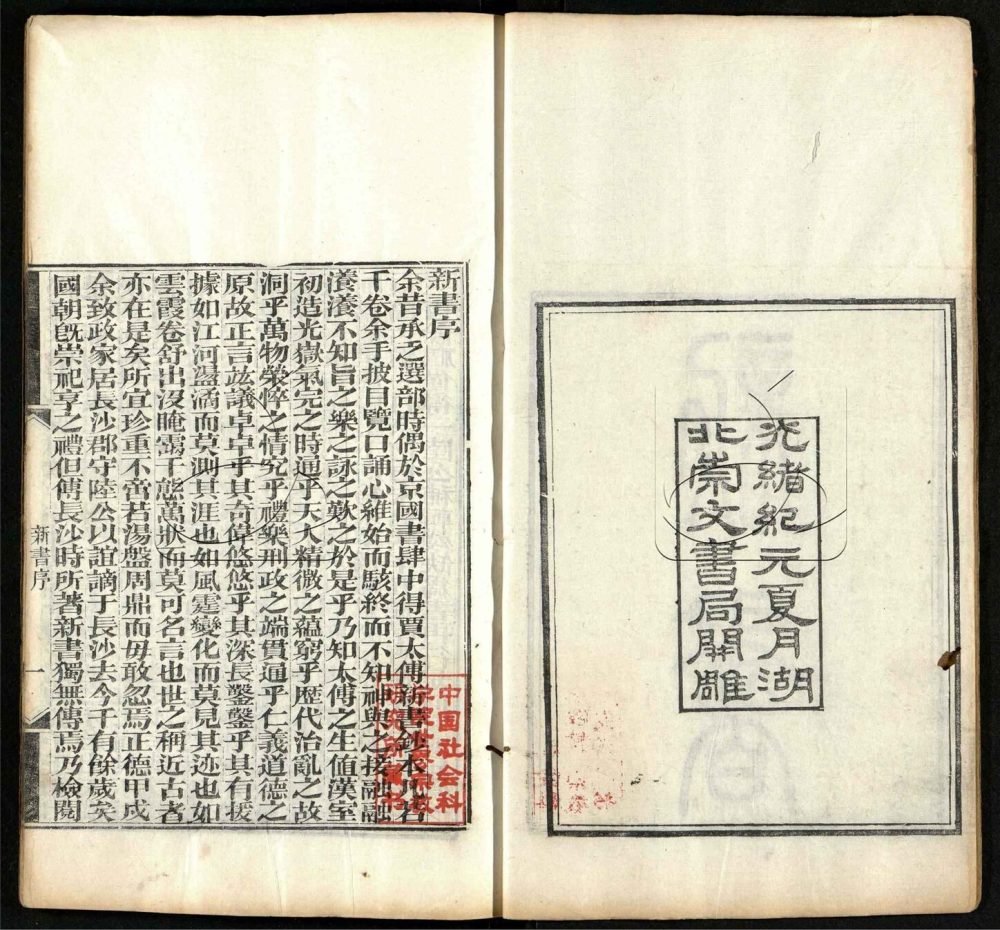 光緒紀元夏月湖
北崇文書局開雕
新書序
余昔承之選部時偶於京國書肆中得賈太傅新書鈔本凡若
干卷余手披目覽口誦心維始而駭終而不知神與之接融融
瀁瀁不知旨之樂之詠之歎之於是乎乃知太傅之生值漢室
初造光嶽氣完之時通乎天人精微之蘊窮乎歷代治亂之故
洞乎萬物榮悴之情究乎禮樂刑政之端貫通乎仁義道德之
原故正言竑議卓卓乎其奇偉悠悠乎其深長鑿鑿乎其有援
據如江河盪潏而莫測其涯也如風霆變化而莫見其迹也如
雲霞卷舒出沒晻靄千態萬狀而莫可名言也世之稱近古者
亦在是矣所宜珍重不啻若湯盤周鼎而毋敢忽焉正德甲戌
余致政家居長沙郡守陸公以誼謫于長沙去今千有餘歲矣
國朝旣崇祀享之禮但傅長沙時所著新書獨無傳焉乃檢閱
新書序
一
中国社会科